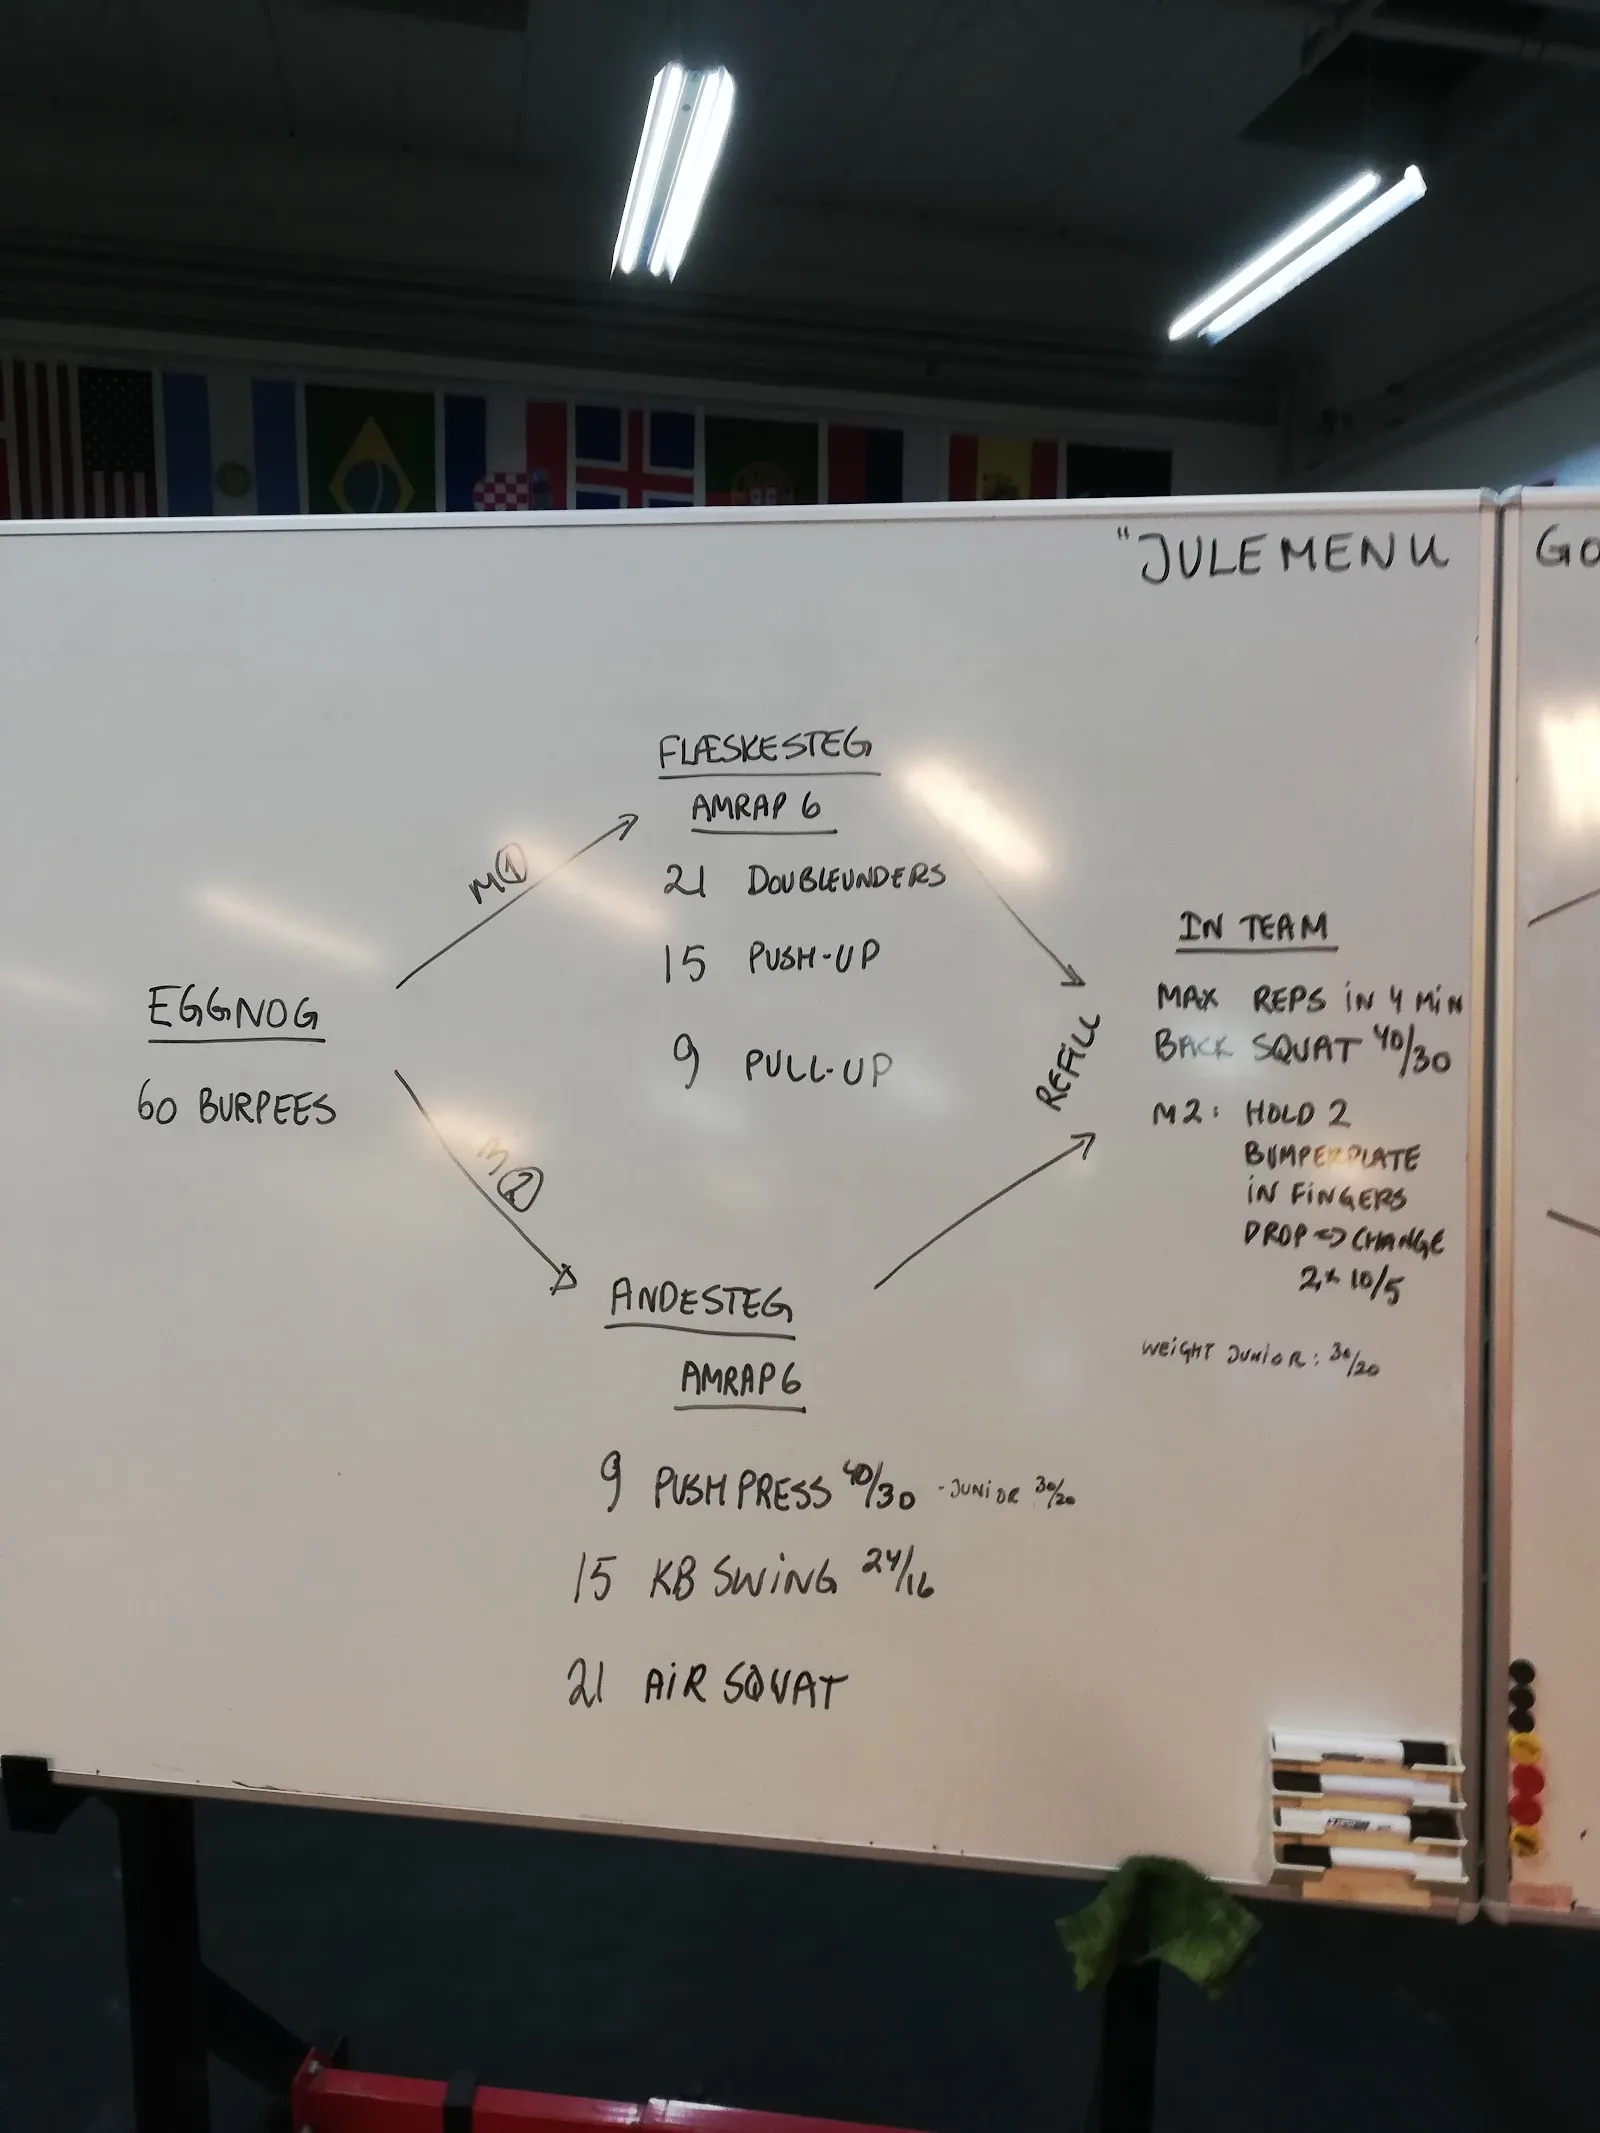 "JULEMENU
GO
FLÆSKESTEG
AMRAP 6
21 DOUBLEUNDERS
15 PUSH-UP
9 PULL-UP
M①
EGGNOG
60 BURPEES
M②
REFILL
ANDESTEG
AMRAP 6
9 PUSH PRESS 40/30 - JUNIOR 30/20
15 KB SWING 24/16
21 AIR SQUAT
IN TEAM
MAX REPS IN 4 MIN
BACK SQUAT 40/30
M2: HOLD 2
BUMPERPLATE
IN FINGERS
DROP => CHANGE
2x 10/5
WEIGHT JUNIOR: 30/20